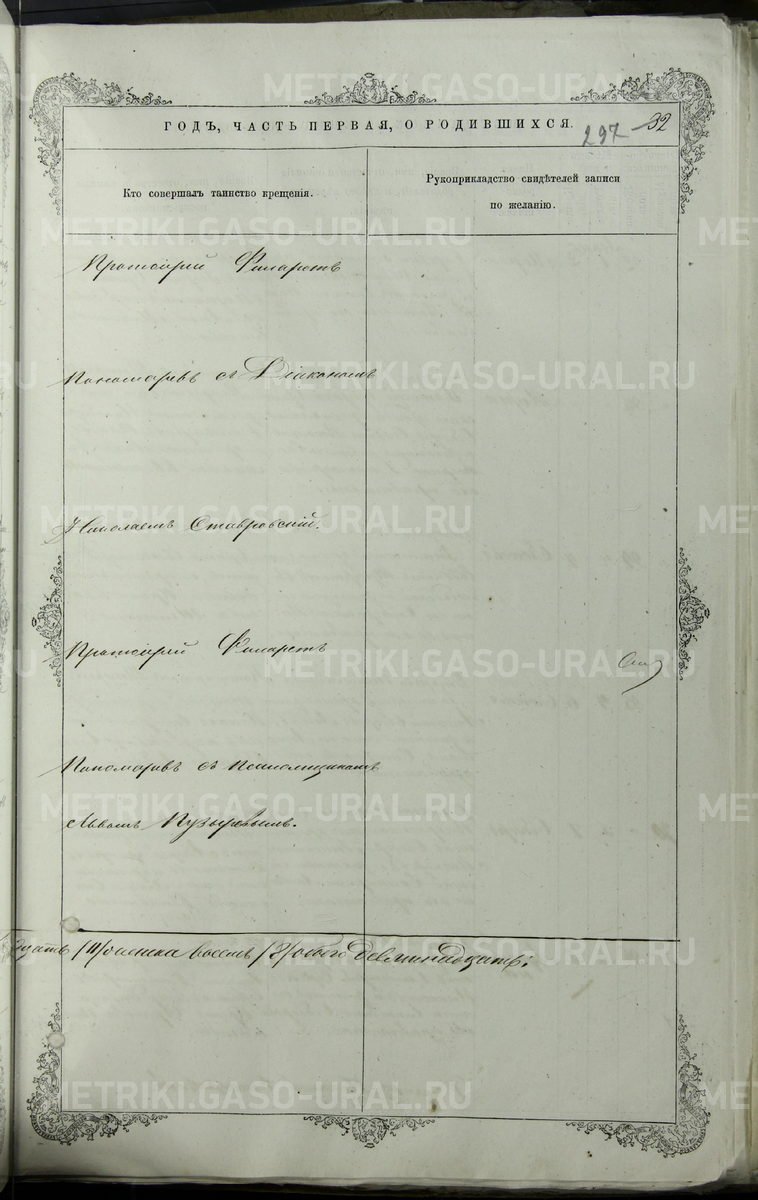 METRIKI.GASO-URAL.RU
ГОДЪ, ЧАСТЬ ПЕРВАЯ, О РОДИВШИХСЯ.
297 32
Кто совершалъ таинство крещенія.
Рукоприкладство свидѣтелей записи
по желанію.
Протоіерей Филаретъ
Пономаревъ съ Діакономъ
Николаемъ Ставровскій.
Протоіерей Филаретъ
Пономаревъ съ Псаломщикомъ
Львомъ Пузыревымъ.
восемь обоего девятнадцать.